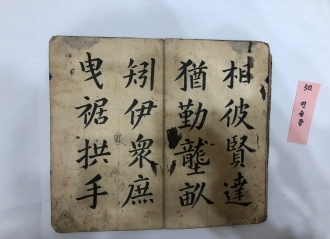 相彼賢達
猶勤壟畝
矧伊衆庶
曳裾拱手